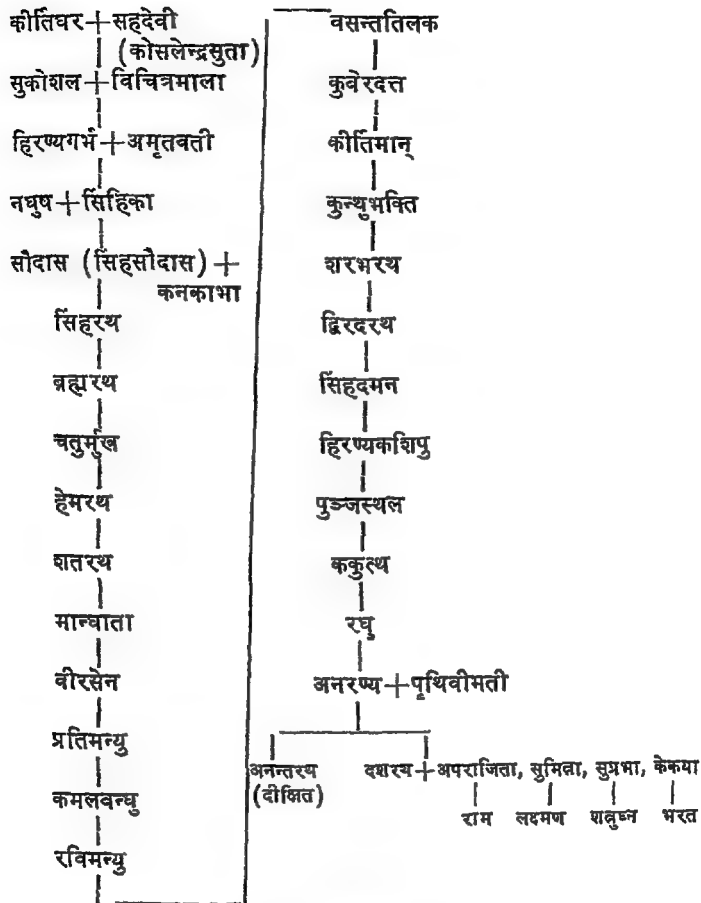 कीर्तिघर + सहदेवी
(कोसलेन्द्रसुता)
सुकोशल + विचित्रमाला
हिरण्यगर्भ + अमृतवती
नघुष + सिंहिका
सौदास (सिंहसौदास) +
कनकाभा
सिंहरथ
ब्रह्मरथ
चतुर्मुख
हेमरथ
शतरथ
मान्धाता
वीरसेन
प्रतिमन्यु
कमलबन्धु
रविमन्यु
वसन्ततिलक
कुवेरदत्त
कीर्तिमान्
कुन्थुभक्ति
शरभरथ
द्विरदरथ
सिंहदमन
हिरण्यकशिपु
पुञ्जस्थल
ककुत्थ
रघु
अनरण्य + पृथिवीमती
अनन्तरथ दशरथ + अपराजिता, सुमित्रा, सुप्रभा, केकया
(दीक्षित) राम लक्ष्मण शत्रुघ्न भरत